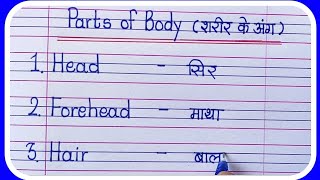 Parts of Body (शरीर के अंग)
1. Head - सिर
2. Forehead - माथा
3. Hair - बाल